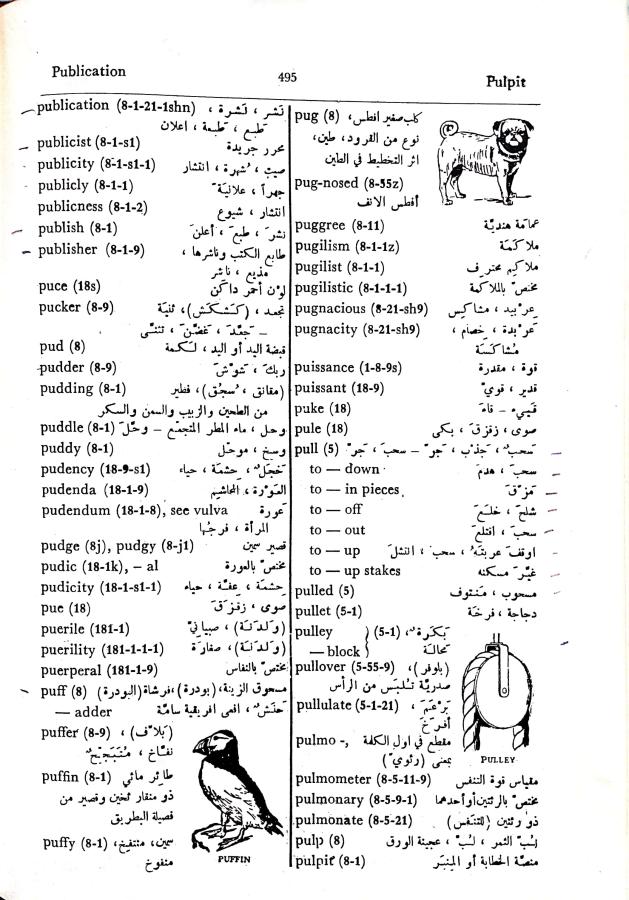 Publication 495 Pulpit
publication (8-1-21-1shn) نَشر ، نَشرة ،
طَبع ، طَبعة ، اعلان
publicist (8-1-s1) محرر جريدة
publicity (8-1-s1-1) صيت ، شُهرة ، انتشار
publicly (8-1-1) جهراً ، علانيَةً
publicness (8-1-2) انتشار ، شيوع
publish (8-1) نشرَ ، طبعَ ، أعلنَ
publisher (8-1-9) طابع الكتب وناشرها ،
مذيع ، ناشر
puce (18s) لون أحمر داكن
pucker (8-9) تجعد ، (كَشكَش) ، ثَنيَة
– جَعَّدَ ، غَضَّنَ ، تَثنّى
pud (8) قبضة اليد أو اليد ، لَكمة
pudder (8-9) ربكَ ، شَوّشَ
pudding (8-1) (مقانق ، سُجُق) ، فطير
من الطحين والزبيب والسمن والسكر
puddle (8-1) وحل ، ماء المطر المتجمع – وحَّلَ
puddy (8-1) وسخ ، موحل
pudency (18-9-s1) خَجَل ، حِشمة ، حياء
pudenda (18-1-9) العَورة ، المحاشيم
pudendum (18-1-8), see vulva عَورة
المرأة ، فرجها
pudge (8j), pudgy (8-j1) قصير سمين
pudic (18-1k), – al مختص بالعورة
pudicity (18-1-s1-1) حِشمَة ، عِفَّة ، حياء
pue (18) صوى ، زقزقَ
puerile (181-1) (وَلدَنة) ، صبيانيّ
puerility (181-1-1-1) (وَلدَنة) ، صغارة
puerperal (181-1-9) مختصّ بالنفاس
puff (8) مسحوق الزينة ، (بودرة) ، فرشاة (البودرة)
— adder حَنَش ، افعى افريقية سامّة
puffer (8-9)
نفّاخ ،
puffin (8-1) طائر مائي
ذو منقار ثخين وقصير من
فصيلة البطريق
puffy (8-1) سمين ، منتفخ ،
منفوخ
PUFFIN
pug (8) كلب صغير افطس ،
نوع من القرود ، طين ،
اثر التخطيط في الطين
pug-nosed (8-55z)
أفطس الانف
puggree (8-11) عمامة هنديّة
pugilism (8-1-1z) ملاكمَة
pugilist (8-1-1) ملاكم محترف
pugilistic (8-1-1-1) مختص بالملاكمة
pugnacious (8-21-sh9) عربيد ، مشاكس
pugnacity (8-21-sh9) عَربدة ، خصام ،
مُشاكسَة
puissance (1-8-9s) قوة ، مقدرة
puissant (18-9) قدير ، قويّ
puke (18) قَيء – قاءَ
pule (18) صوى ، زقزقَ ، بكى
pull (5) سَحب ، جَذب ، جَرّ – سحبَ ، جَرّ
to — down سحبَ ، هدمَ
to — in pieces مَزَّقَ
to — off شلحَ ، خلعَ
to — out سحبَ ، اقتلعَ
to — up اوقفَ عربتهُ ، سحبَ ، انتشلَ
to — up stakes غيَّرَ مسكنه
pulled (5) مسحوب ، مَنتوف
pullet (5-1) دجاجة ، فرخة
pulley } (5-1) ، بَكَرة ،
— block } محالة
pullover (5-55-9) (بلوفر) ،
صدريّة تُلبَس من الرأس
pullulate (5-1-21) بَرعَمَ ،
أفرخَ
pulmo -, مقطع في اول الكلمة
بمعنى (رئويّ)
PULLEY
pulmometer (8-5-11-9) مقياس قوة التنفس
pulmonary (8-5-9-1) مختصّ بالرئتين أو أحدهما
pulmonate (8-5-21) ذو رئتين (للتنفس)
pulp (8) لُب الثمر ، لُبّ ، عجينة الورق
pulpit (8-1) منصّة الخطابة أو المِنبَر